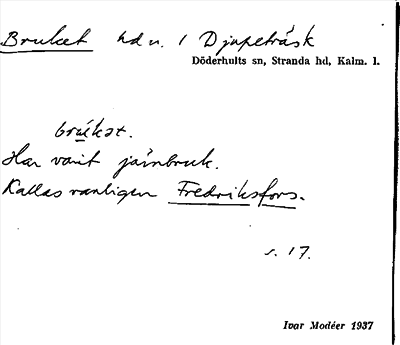 Bruket hd n. 1 Djupeträsk
Döderhults sn, Stranda hd, Kalm. l.
brukət.
Har varit järnbruk.
Kallas vanligen Fredriksfors.
s. 17.
Ivar Modéer 1937